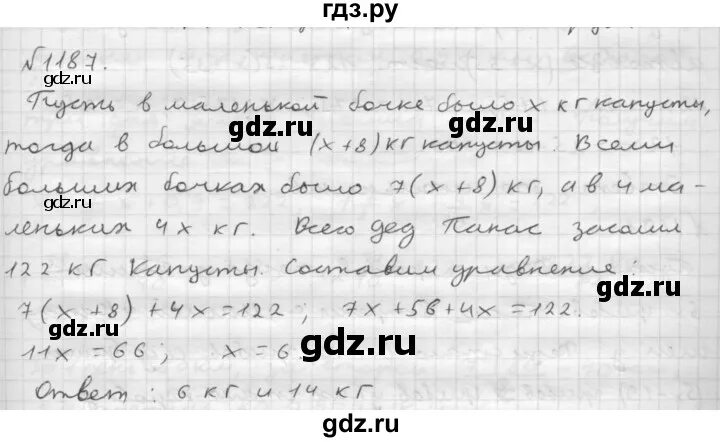 гдз.ру
№1187.
Пусть в маленькой бочке было x кг капусты,
тогда в большой (x+8) кг капусты. В семи
больших бочках было 7(x+8) кг, а в 4 ма-
леньких 4x кг. Всего дед Панас засолил
122 кг капусты. Составим уравнение:
7(x+8)+4x=122; 7x+56+4x=122.
11x=66; x=6
Ответ: 6 кг и 14 кг
gdz.ru
gdz.ru
gdz.ru
gdz.ru
gdz.ru
gdz.ru
gdz.ru
gdz.ru
gdz.ru
gdz.ru